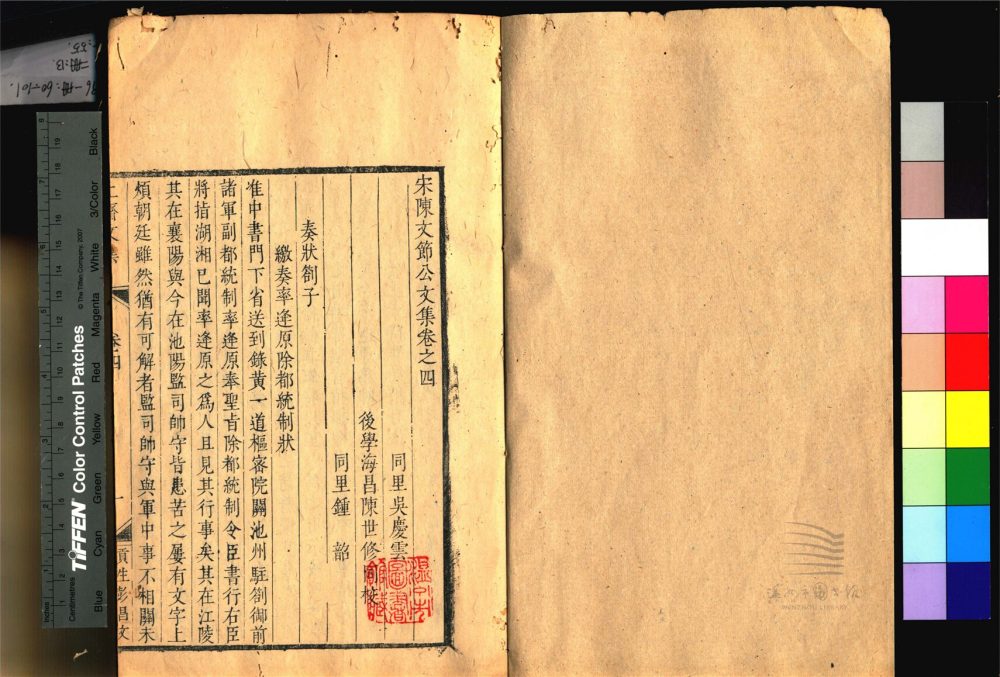 宋陳文節公文集卷之四
同里吳慶雲
後學海昌陳世修
同里鍾 韶
校
奏狀劄子
繳奏率逢原除都統制狀
准中書門下省送到錄黃一道樞密院關池州駐劄御前
諸軍副都統制率逢原奉聖旨除都統制令臣書行右臣
將指湖湘已聞率逢原之爲人且見其行事矣其在江陵
其在襄陽與今在池陽監司帥守皆患苦之屢有文字上
煩朝廷雖然猶有可解者監司帥守與軍中事不相關未
止齋文集 卷四 一 貢生彭昌文
WENZHOU LIBRARY
TIFFEN Color Control Patches
© The Tiffen Company, 2007
Inches
Centimetres
Blue Cyan Green Yellow Red Magenta White 3/Color Black